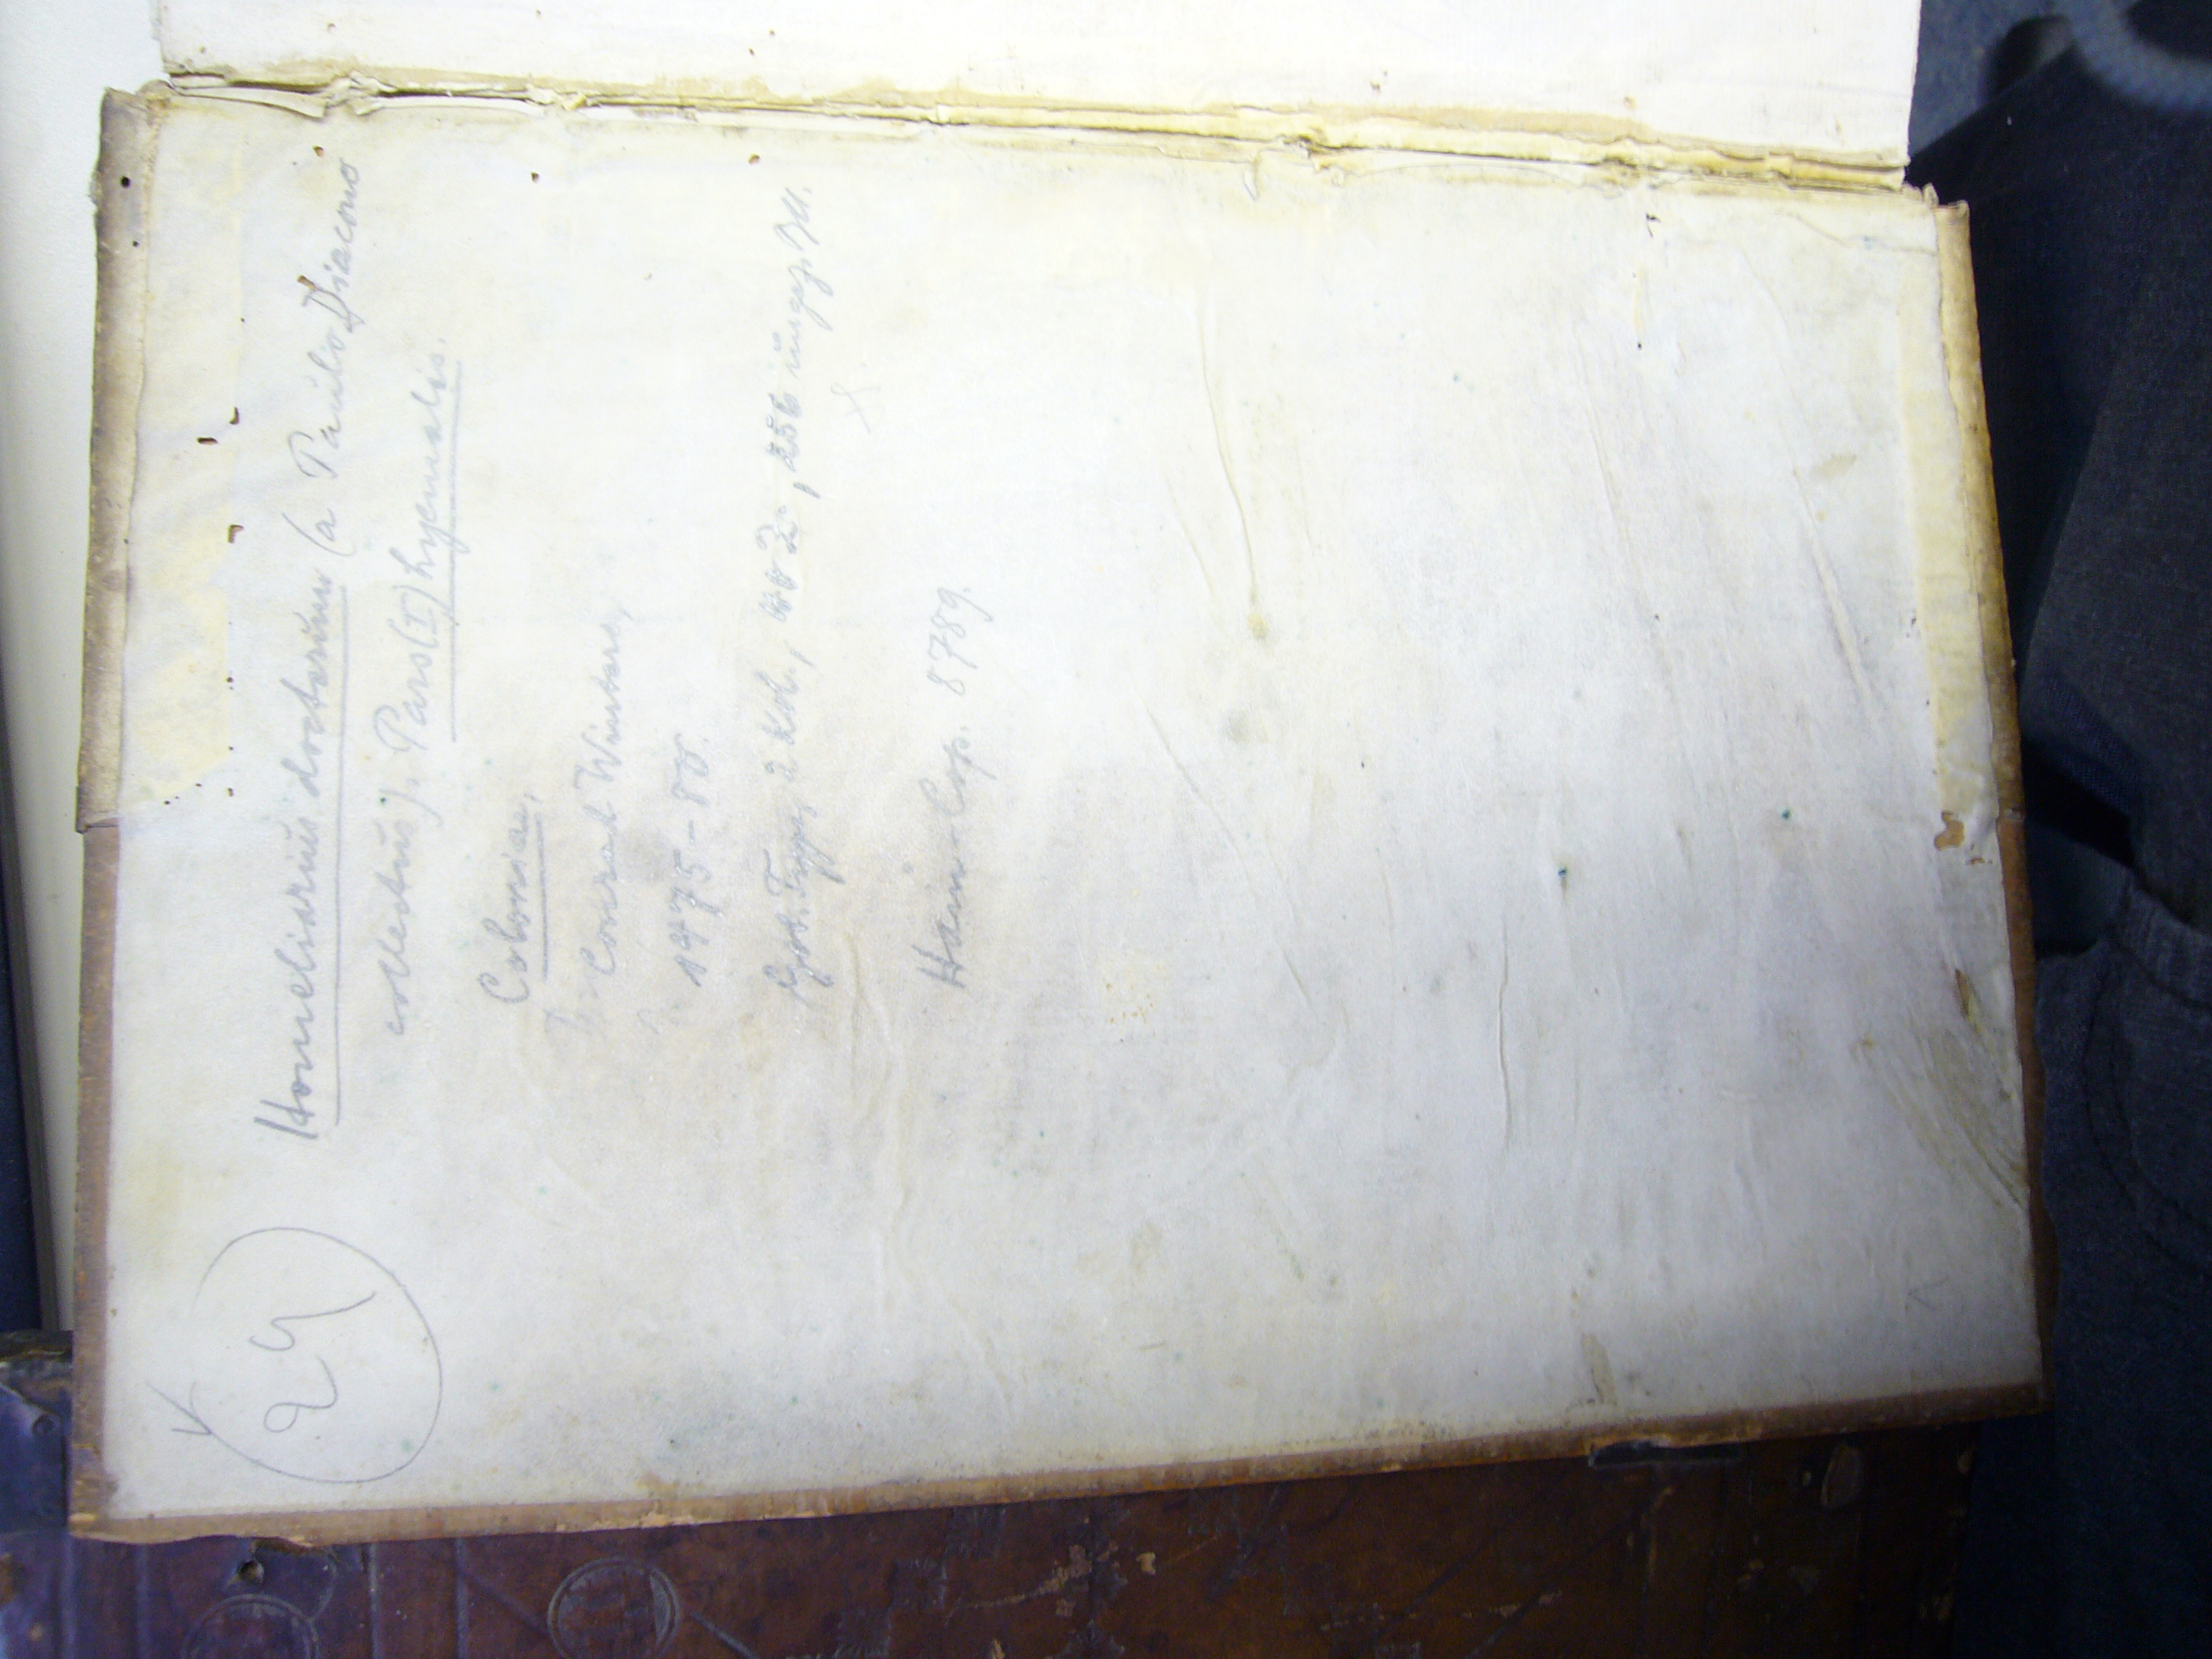 Homeliarius doctorum (a Paulo Diacono
collectus). Pars (I) hyemalis.
Coloniae,
Conrad Winters,
1475-80.
Got. Typ., 2 Kol., 40 Z., 256 ungez. Bll.
Hain-Cop. 8789.
24